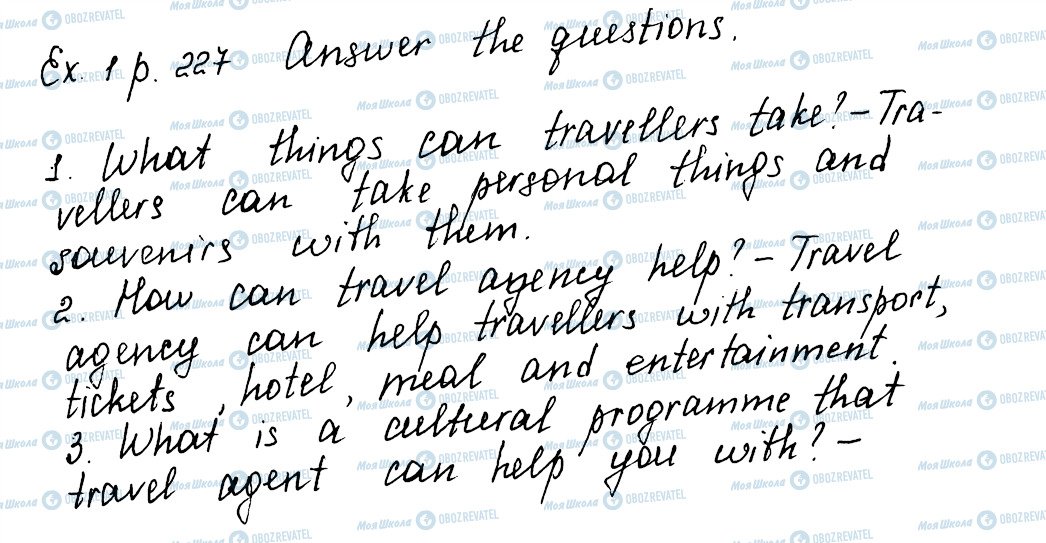 Ex. 1 p. 227 Answer the questions.
1. What things can travellers take? – Tra-
vellers can take personal things and
souvenirs with them.
2. How can travel agency help? – Travel
agency can help travellers with transport,
tickets, hotel, meal and entertainment.
3. What is a cultural programme that
travel agent can help you with? –